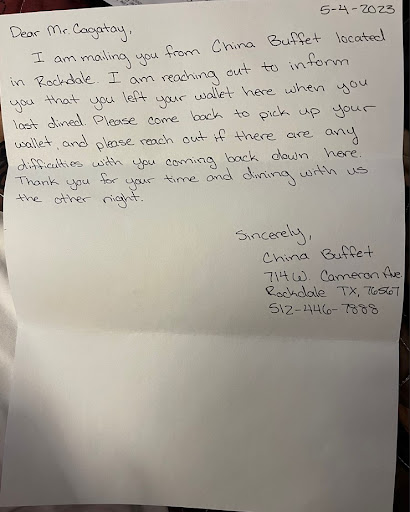 5-4-2023
Dear Mr. Cagatay,
I am mailing you from China Buffet located
in Rockdale. I am reaching out to inform
you that you left your wallet here when you
last dined. Please come back to pick up your
wallet, and please reach out if there are any
difficulties with you coming back down here.
Thank you for your time and dining with us
the other night.
Sincerely,
China Buffet
714 W. Cameron Ave
Rockdale TX, 76567
512-446-7888